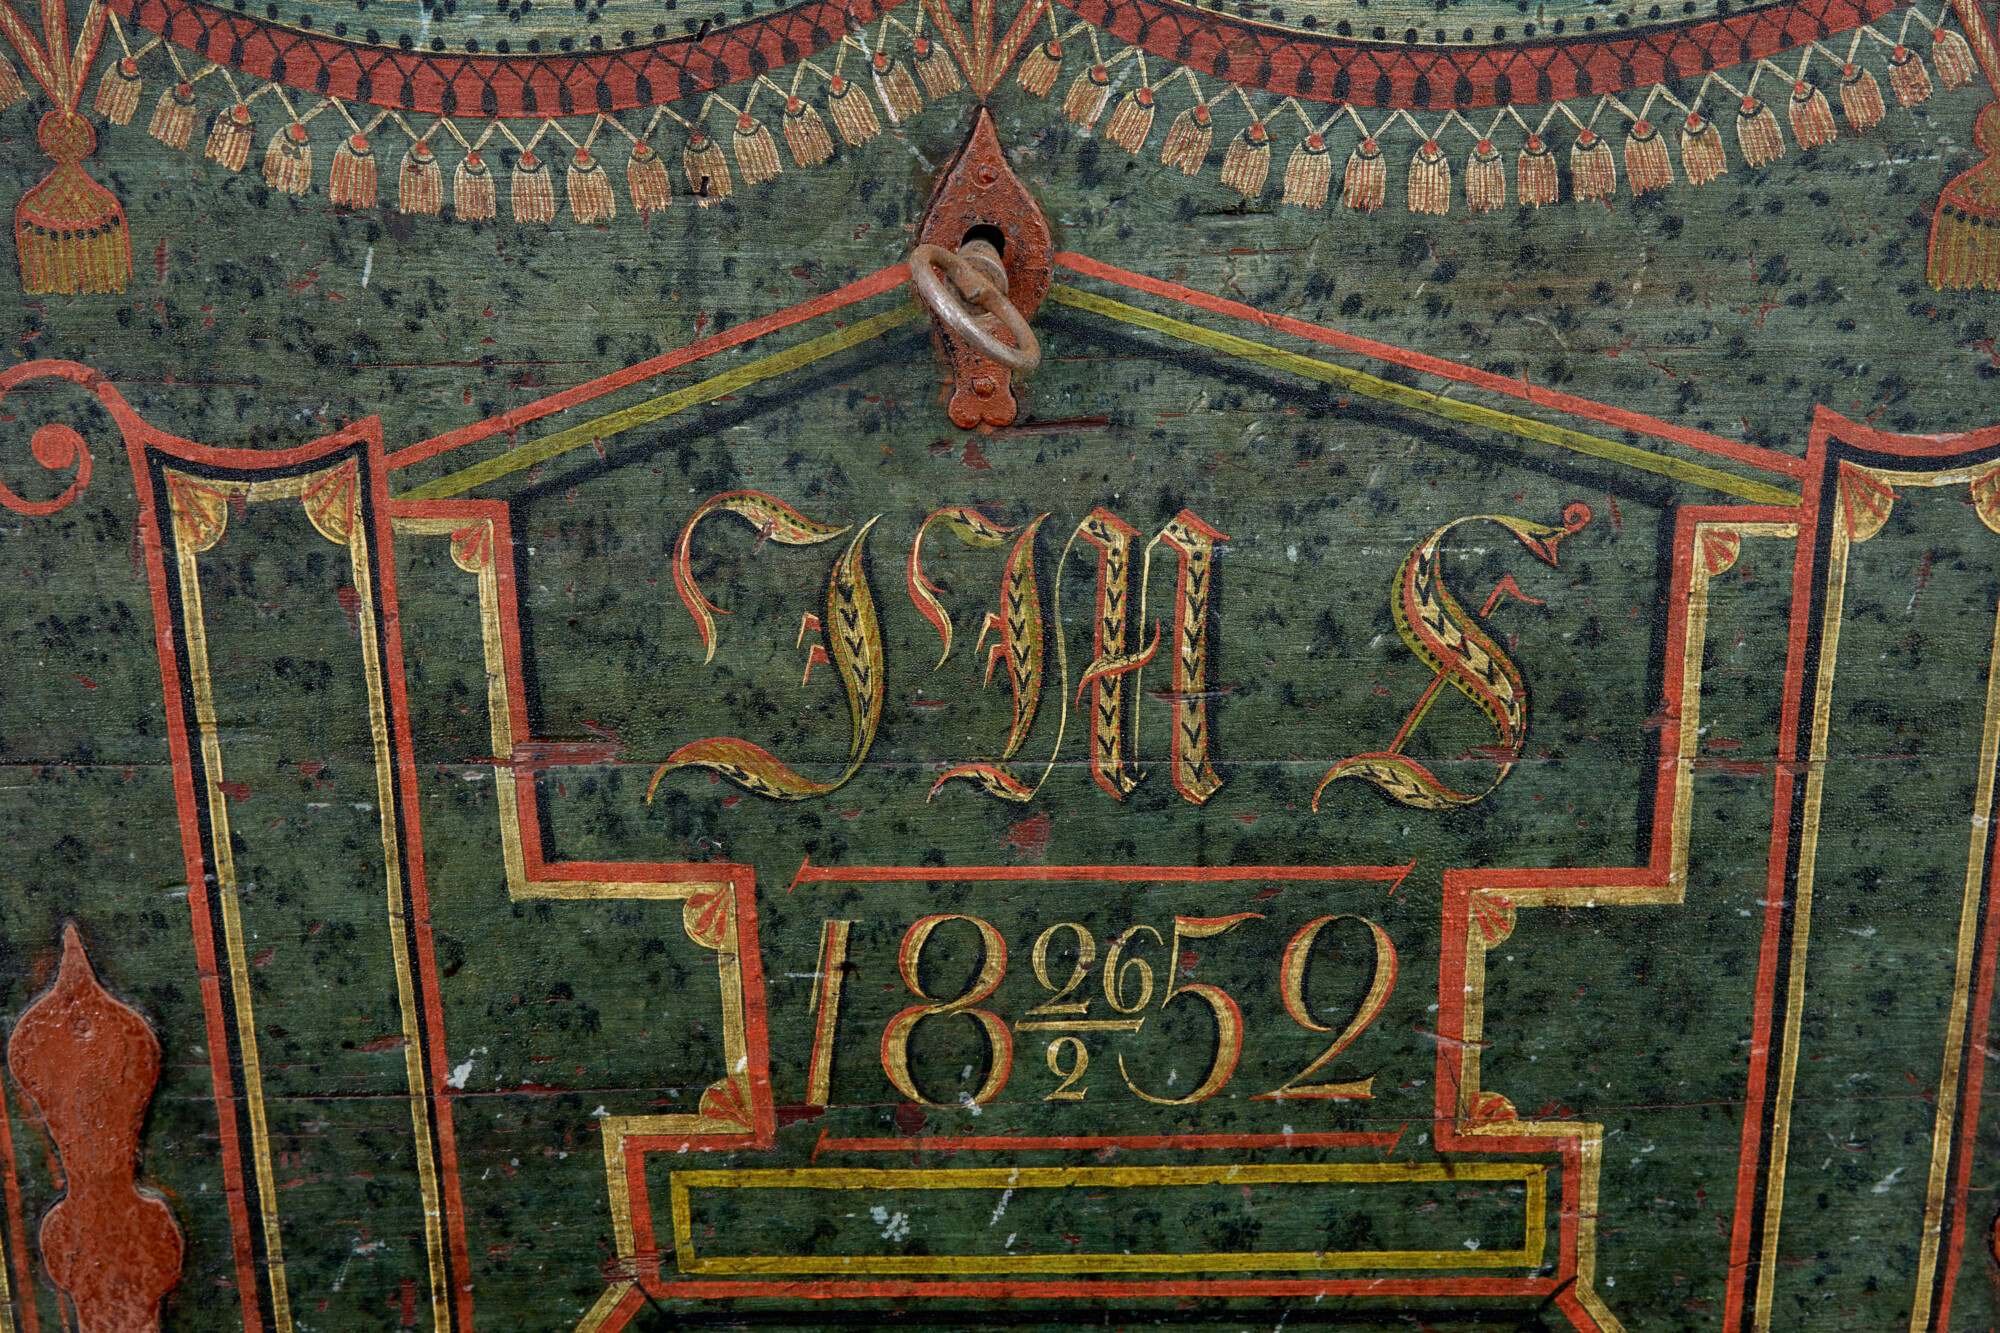 I M S
18 26/2 52